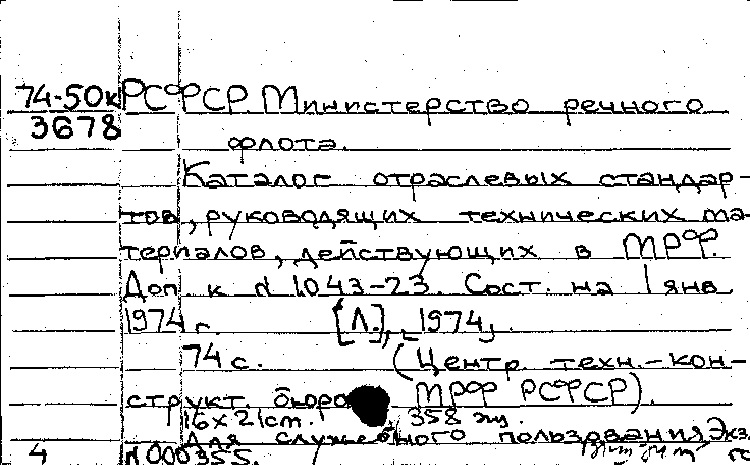 74-50к РСФСР. Министерство речного
3678 флота.
Каталог отраслевых стандар-
тов, руководящих технических ма-
териалов, действующих в МРФ.
Доп. к N 1043-23. Сост. на 1 янв
1974 г. [Л.], 1974,
74 с. (Центр. техн.-кон-
структ. бюро МРФ РСФСР).
16х21cm. 358 экз.
Для служебного пользования Экз.
4 N 000355.